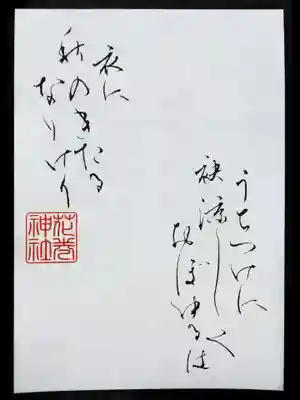 うちつけに
袂涼しく
おぼゆるは
衣に
秋のきたる
なりけり
花巻
神社